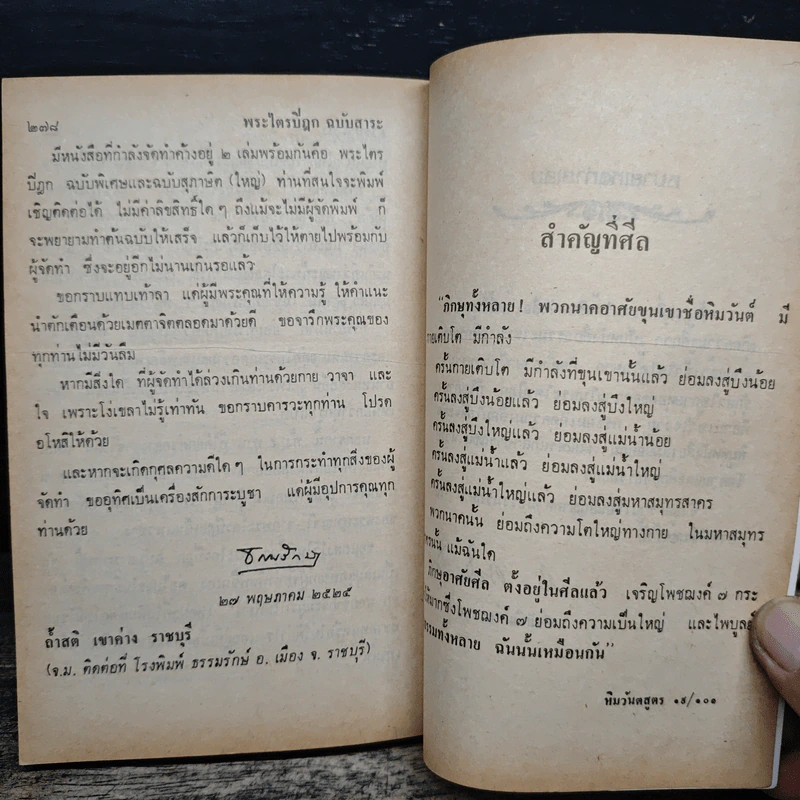 ๒๗๘ พระไตรปิฎก ฉบับสาระ
มีหนังสือที่กำลังจัดทำค้างอยู่ ๒ เล่มพร้อมกันคือ พระไตร
ปิฎก ฉบับพิเศษและฉบับสุภาษิต (ใหญ่) ท่านที่สนใจจะพิมพ์
เชิญติดต่อได้ ไม่มีค่าลิขสิทธิ์ใด ๆ ถึงแม้จะไม่มีผู้จัดพิมพ์ ก็
จะพยายามทำต้นฉบับให้เสร็จ แล้วก็เก็บไว้ให้ตายไปพร้อมกับ
ผู้จัดทำ ซึ่งจะอยู่อีกไม่นานเกินรอแล้ว
ขอกราบแทบเท้าลา แด่ผู้มีพระคุณที่ให้ความรู้ ให้คำแนะ
นำตักเตือนด้วยเมตตาจิตตลอดมาด้วยดี ขอจารึกพระคุณของ
ทุกท่านไม่มีวันลืม
หากมีสิ่งใด ที่ผู้จัดทำได้ล่วงเกินท่านด้วยกาย วาจา และ
ใจ เพราะโง่เขลาไม่รู้เท่าทัน ขอกราบคารวะทุกท่าน โปรด
อโหสิให้ด้วย
และหากจะเกิดกุศลความดีใด ๆ ในการกระทำทุกสิ่งของผู้
จัดทำ ขออุทิศเป็นเครื่องสักการะบูชา แด่ผู้มีอุปการคุณทุก
ท่านด้วย
๒๗ พฤษภาคม ๒๕๒๕
ถ้ำสติ เขาค่าง ราชบุรี
(จ.ม. ติดต่อที่ โรงพิมพ์ ธรรมรักษ์ อ. เมือง จ. ราชบุรี)
สำคัญที่ศีล
"ภิกษุทั้งหลาย! พวกนาคอาศัยขุนเขาชื่อหิมวันต์ มี
กายเติบโต มีกำลัง
ครั้นกายเติบโต มีกำลังที่ขุนเขานั้นแล้ว ย่อมลงสู่บึงน้อย
ครั้นลงสู่บึงน้อยแล้ว ย่อมลงสู่บึงใหญ่
ครั้นลงสู่บึงใหญ่แล้ว ย่อมลงสู่แม่น้ำน้อย
ครั้นลงสู่แม่น้ำแล้ว ย่อมลงสู่แม่น้ำใหญ่
ครั้นลงสู่แม่น้ำใหญ่แล้ว ย่อมลงสู่มหาสมุทรสาคร
พวกนาคนั้น ย่อมถึงความโตใหญ่ทางกาย ในมหาสมุทร
แม้ฉันใด
ภิกษุอาศัยศีล ตั้งอยู่ในศีลแล้ว เจริญโพชฌงค์ ๗ กระ
ทำให้มากซึ่งโพชฌงค์ ๗ ย่อมถึงความเป็นใหญ่ และไพบูลย์
ธรรมทั้งหลาย ฉันนั้นเหมือนกัน"
หิมวันตสูตร ๑๙/๑๐๑